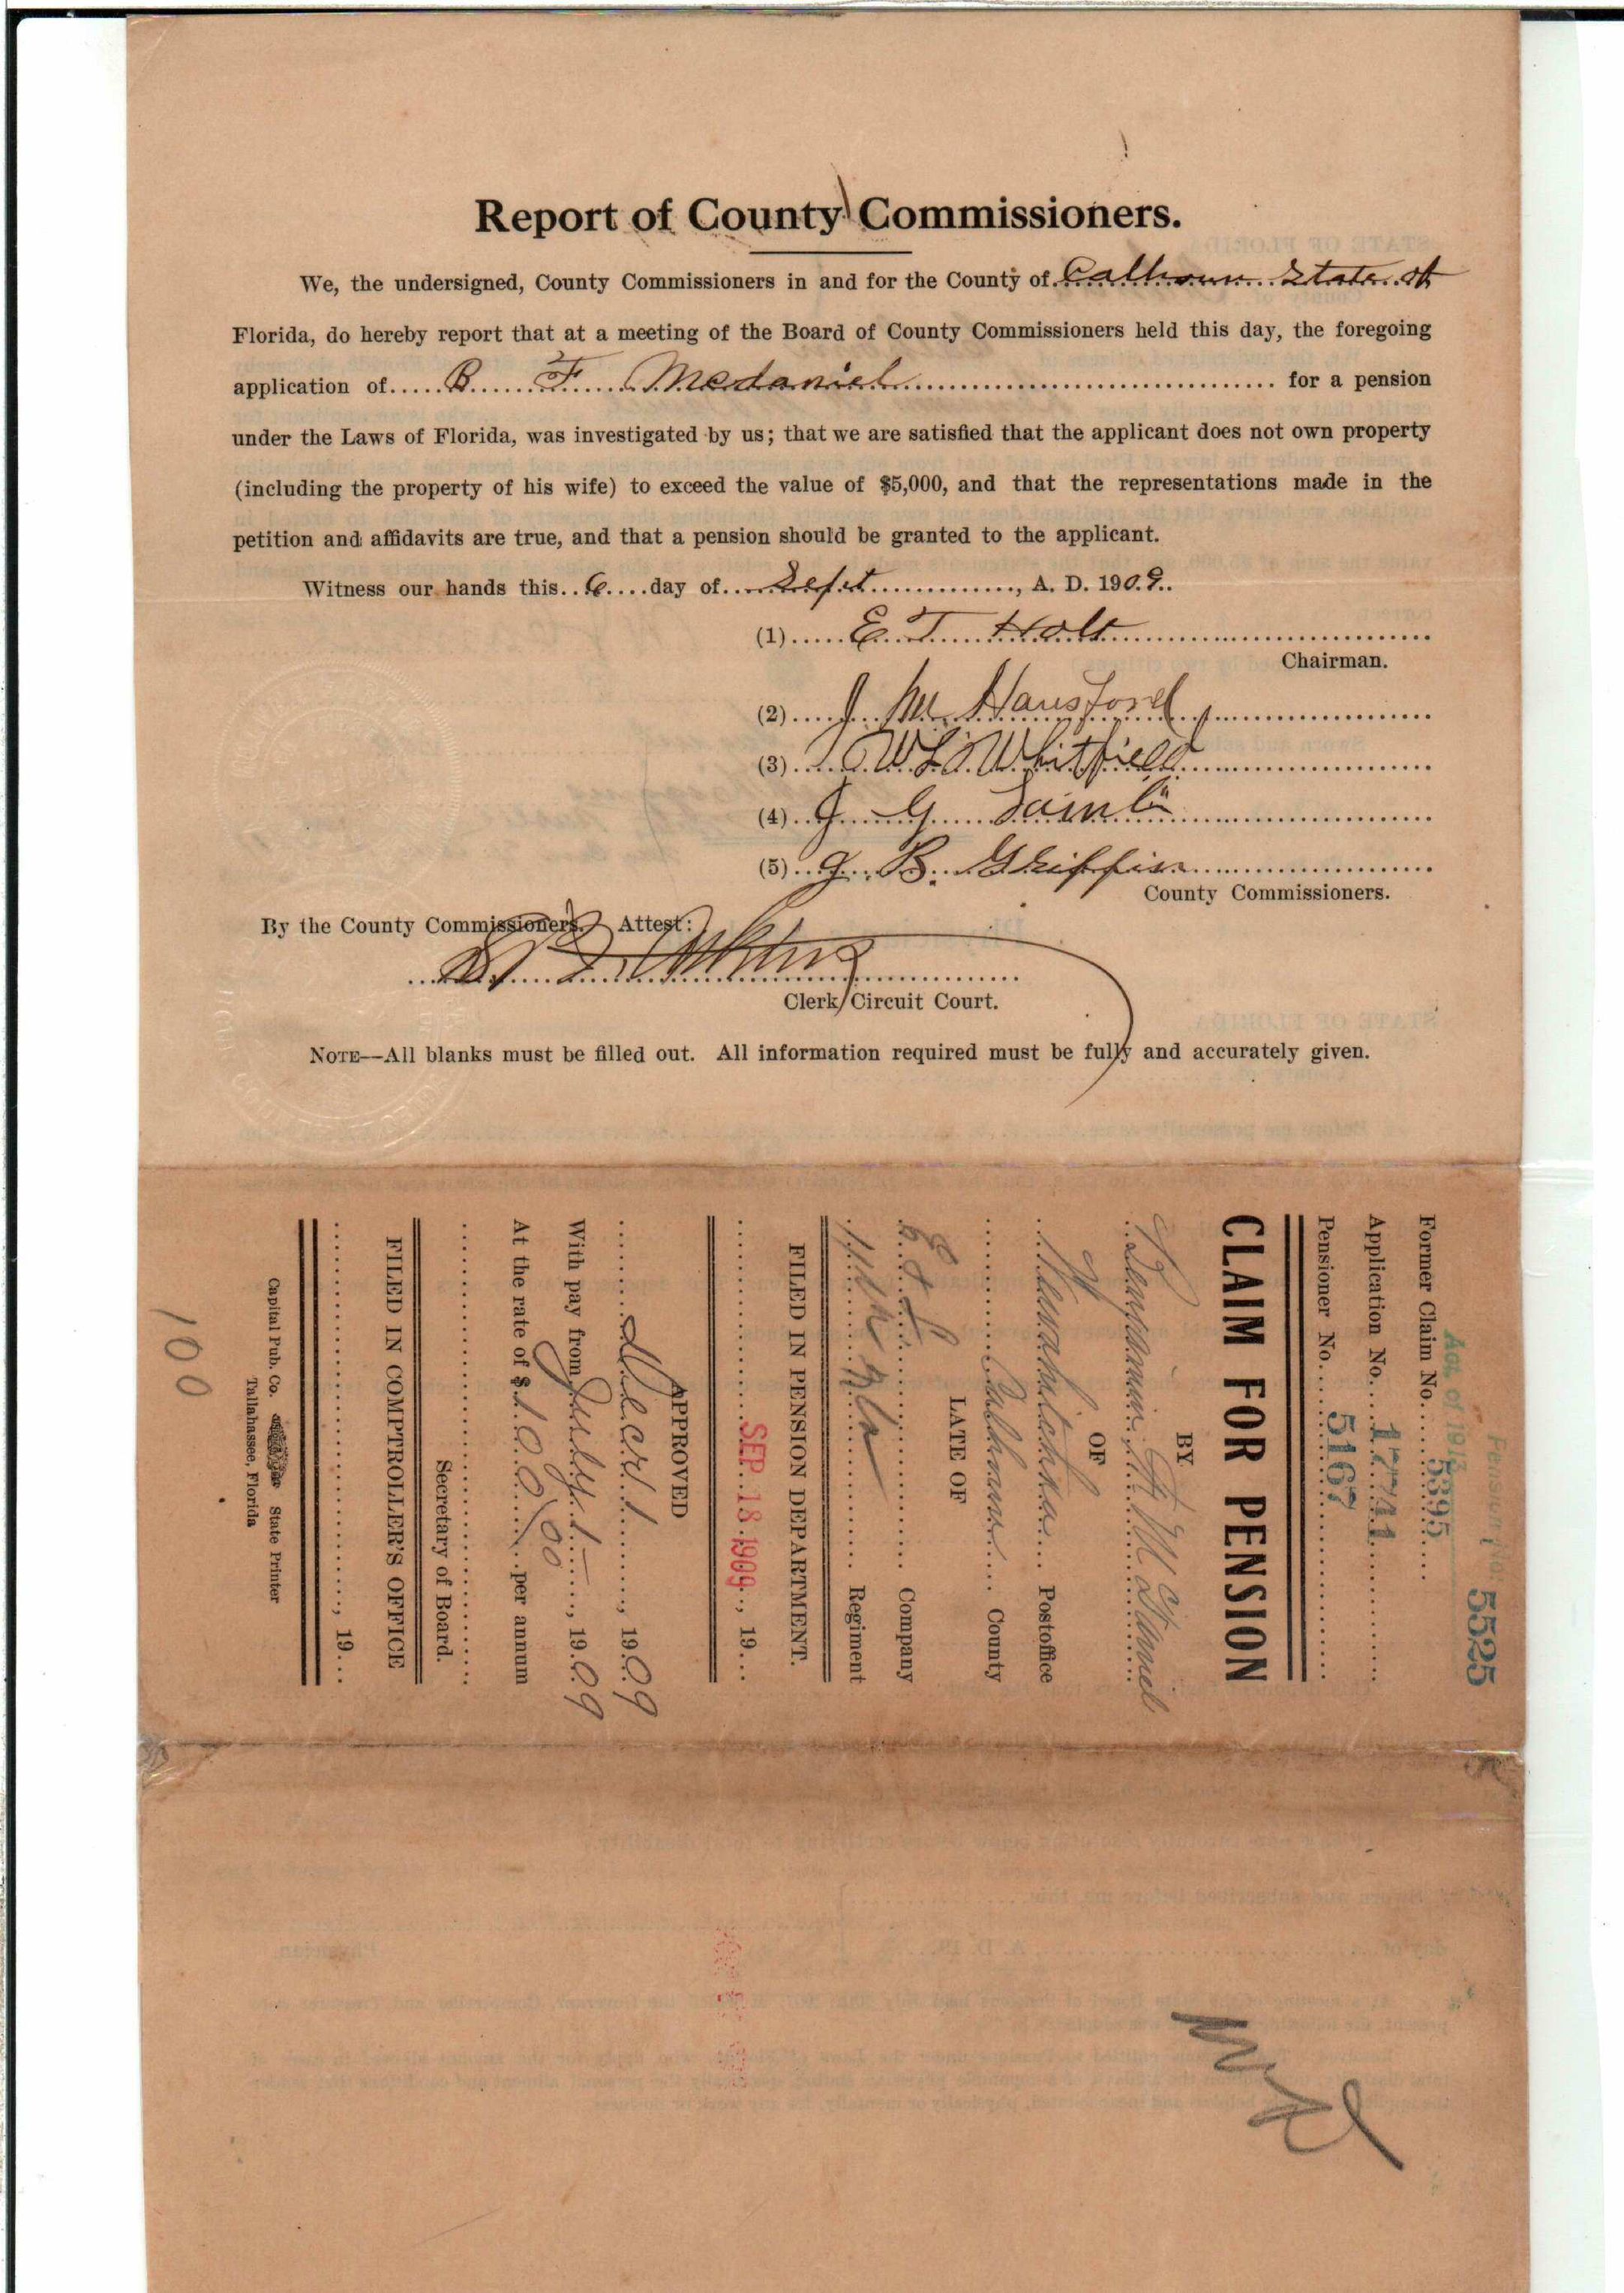 Report of County Commissioners.
We, the undersigned, County Commissioners in and for the County of Calhoun State of
Florida, do hereby report that at a meeting of the Board of County Commissioners held this day, the foregoing
application of B F Mcdaniel for a pension
under the Laws of Florida, was investigated by us; that we are satisfied that the applicant does not own property
(including the property of his wife) to exceed the value of $5,000, and that the representations made in the
petition and affidavits are true, and that a pension should be granted to the applicant.
Witness our hands this 6 day of Sept, A. D. 1909.
(1) E T Holt
Chairman.
(2) J M Hansford
(3) W L Whitfield
(4) J G
(5) J. B. Griffin
County Commissioners.
By the County Commissioners. Attest:
Clerk Circuit Court.
NOTE—All blanks must be filled out. All information required must be fully and accurately given.
Pension No. 5525
Act of 1913
Former Claim No. 5395
Application No. 17741
Pensioner No. 5167
CLAIM FOR PENSION
BY
Benjamin F McDaniel
OF
Wewahitchka Postoffice
Calhoun County
LATE OF
Company
Regiment
FILED IN PENSION DEPARTMENT.
SEP 18 1909, 19
APPROVED
Dec 1, 1909
With pay from July 1, 1909
At the rate of $ 100/00 per annum
Secretary of Board.
FILED IN COMPTROLLER'S OFFICE
, 19
Capital Pub. Co. State Printer
Tallahassee, Florida
100